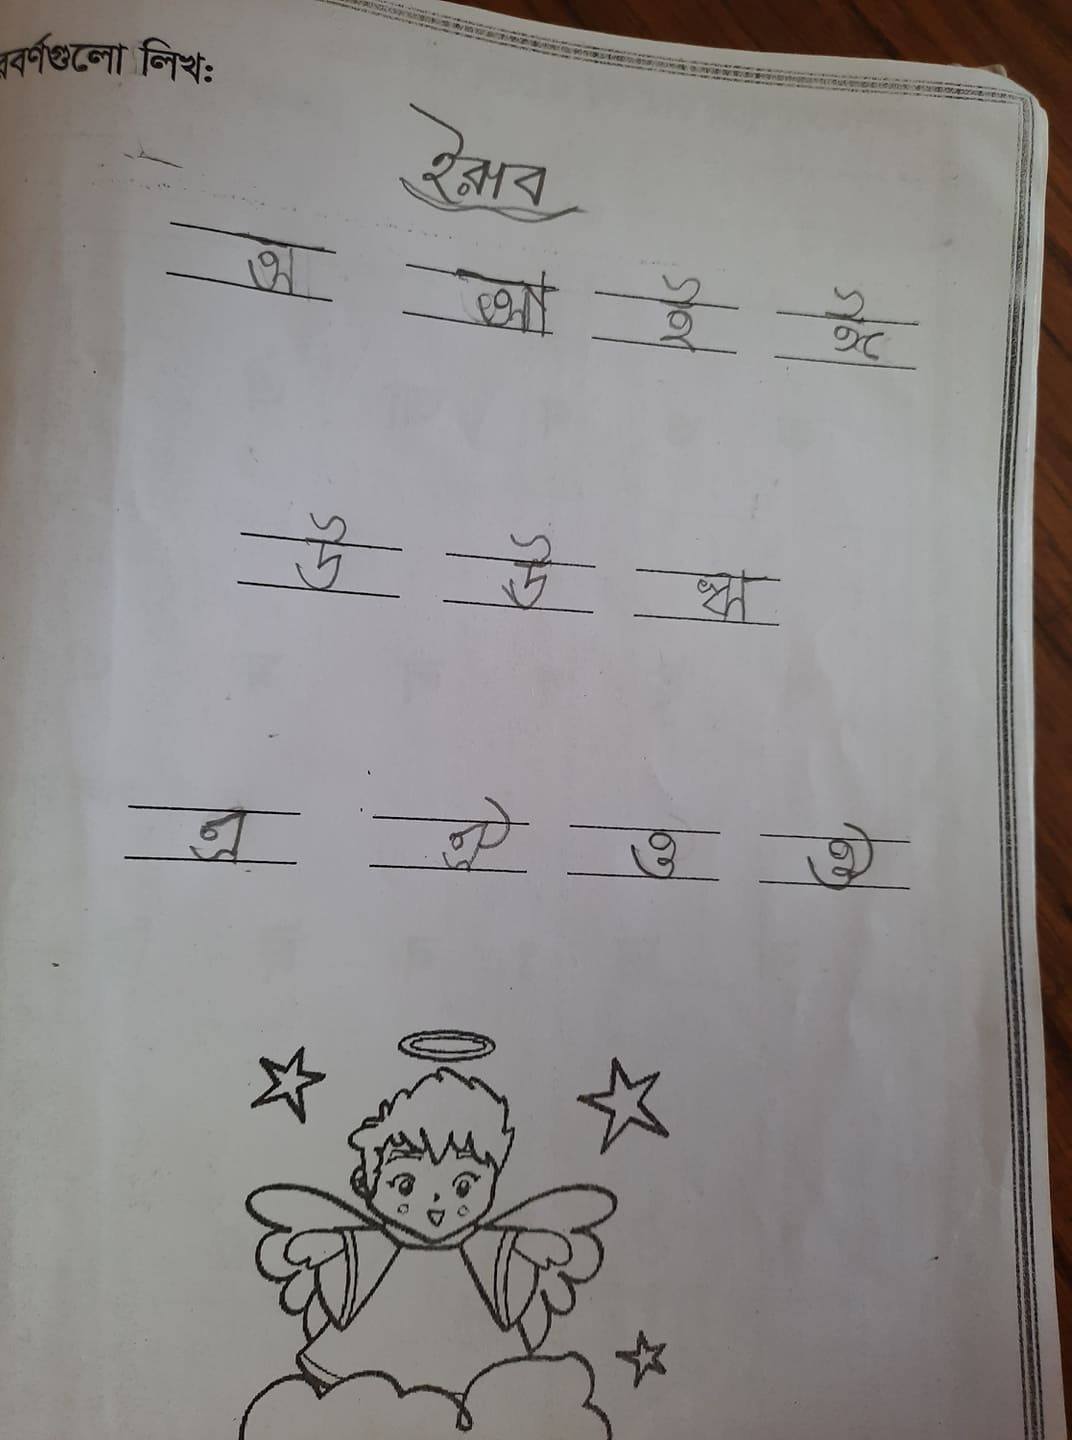 বর্ণগুলো লিখ:
ইরাব
অ আ ই ঈ
উ ঊ ঋ
এ ঐ ও ঔ